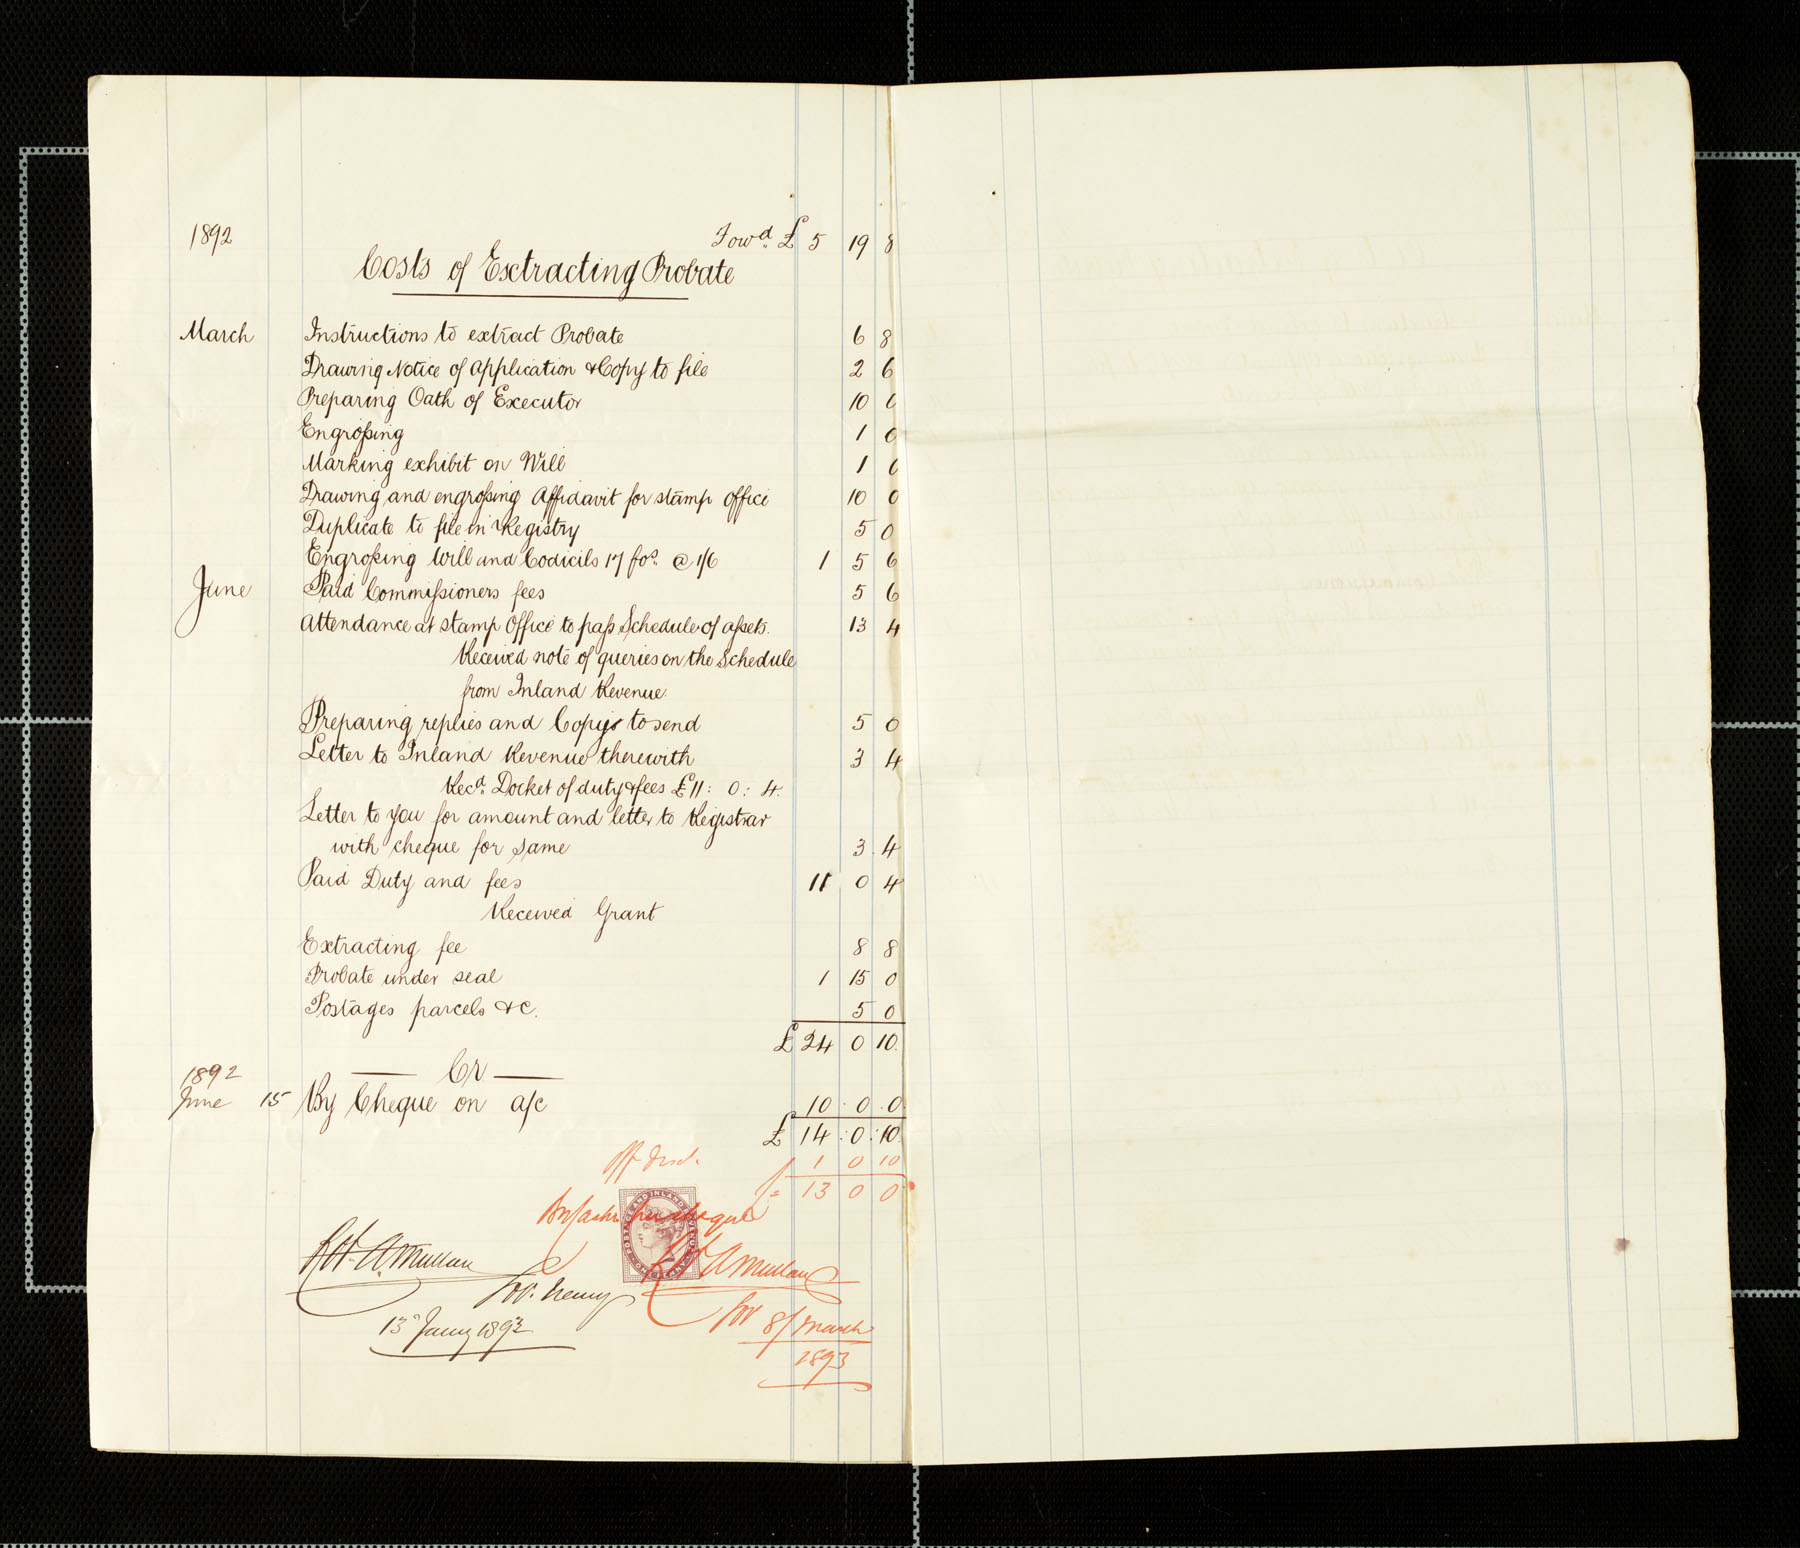 1892 Fowd. £ 5 19 8
Costs of Extracting Probate
March Instructions to extract Probate 6 8
Drawing Notice of Application & Copy to file 2 6
Preparing Oath of Executor 10 0
Engrossing 1 0
Marking exhibit on Will 1 0
Drawing and engrossing Affidavit for stamp office 10 0
Duplicate to file in Registry 5 0
Engrossing Will and Codicils 17 fos. @ 1/6 1 5 6
June Paid Commissioners fees 5 6
Attendance at Stamp Office to pass Schedule of assets. 13 4
Received note of queries on the Schedule
from Inland Revenue
Preparing replies and Copy to send 5 0
Letter to Inland Revenue therewith 3 4
Recd. Docket of duty & fees £11: 0: 4.
Letter to you for amount and letter to Registrar
with cheque for same 3 4
Paid Duty and fees 11 0 4
Received Grant
Extracting fee 8 8
Probate under seal 1 15 0
Postages parcels &c. 5 0
£ 24 0 10.
1892 — Cr —
June 15 By Cheque on a/c 10 . 0 . 0
£ 14 : 0 : 10.
off 1 0 10
£= 13 0 0
By cash per cheque
POSTAGE AND INLAND REVENUE
13 Jany 1893
8/ March
1893